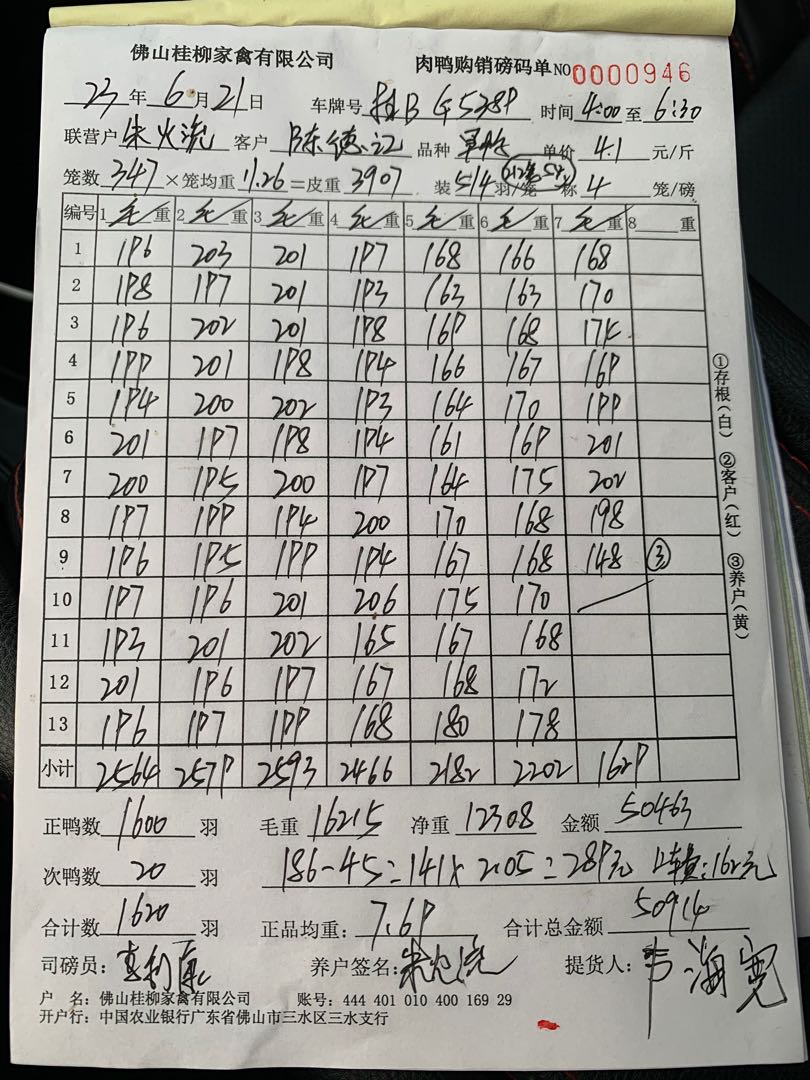 佛山桂柳家禽有限公司 肉鸭购销磅码单 NO 0000946
23 年 6 月 21 日 车牌号 桂B G5289 时间 4:00 至 6:30
联营户 朱火流 客户 陈德记 品种 单价 4.1 元/斤
笼数 347 ×笼均重 11.26 =皮重 3907 装 5/4 羽/笼 称 4 笼/磅
编号 1 毛 重 2 毛 重 3 毛 重 4 毛 重 5 毛 重 6 毛 重 7 毛 重 8 重
1 196 203 201 197 168 166 168
2 198 197 201 193 163 163 170
3 196 202 201 198 169 168 174
4 199 201 198 194 166 167 169
5 194 200 202 193 164 170 199
6 201 197 198 194 161 169 201
7 200 195 200 197 164 175 202
8 197 199 194 200 170 168 198
9 196 195 199 194 167 168 148 ③
10 197 196 201 206 175 170
11 193 201 202 165 167 168
12 201 196 197 167 168 172
13 196 197 199 168 180 178
小计 2564 2579 2593 2466 2182 2202 1629
正鸭数 1600 羽 毛重 16215 净重 12308 金额 50463
次鸭数 20 羽 186-45=141×2.05=289元 上车费:162元
合计数 1620 羽 正品均重: 7.69 合计总金额 50914
司磅员: 养户签名: 朱火流 提货人: 韦海宽
户 名: 佛山桂柳家禽有限公司 账号: 444 401 010 400 169 29
开户行: 中国农业银行广东省佛山市三水区三水支行
①存根(白) ②客户(红) ③养户(黄)